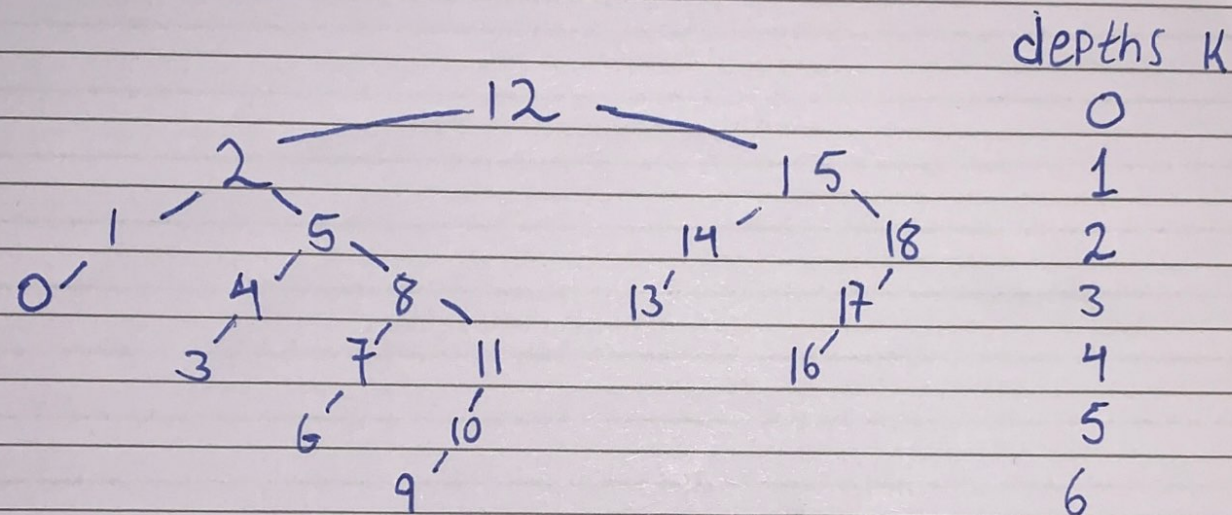 depths K
12 0
2 15 1
1 5 14 18 2
0 4 8 13 17 3
3 7 11 16 4
6 10 5
9 6